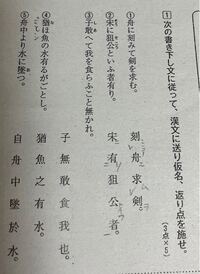 1 次の書き下し文に従って、漢文に送り仮名、返り点を施せ。
(3点×5)
①舟に刻みて剣を求む。
刻舟求剣。
②宋に狙公といふ者有り。
宋有狙公者。
③子敢へて我を食らふこと無かれ。
子無敢食我也。
④猶ほ魚の水有るがごとし。
猶魚之有水。
⑤舟中より水に墜つ。
自舟中墜於水。